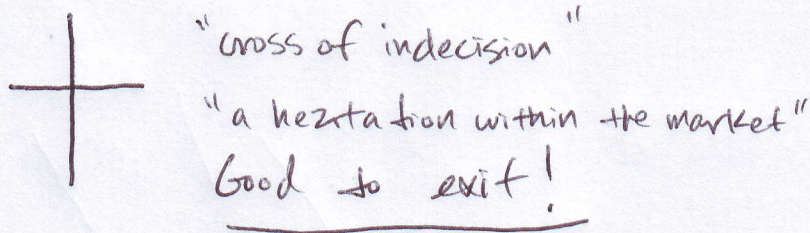 "cross of indecision"
"a heztation within the market"
Good to exit!